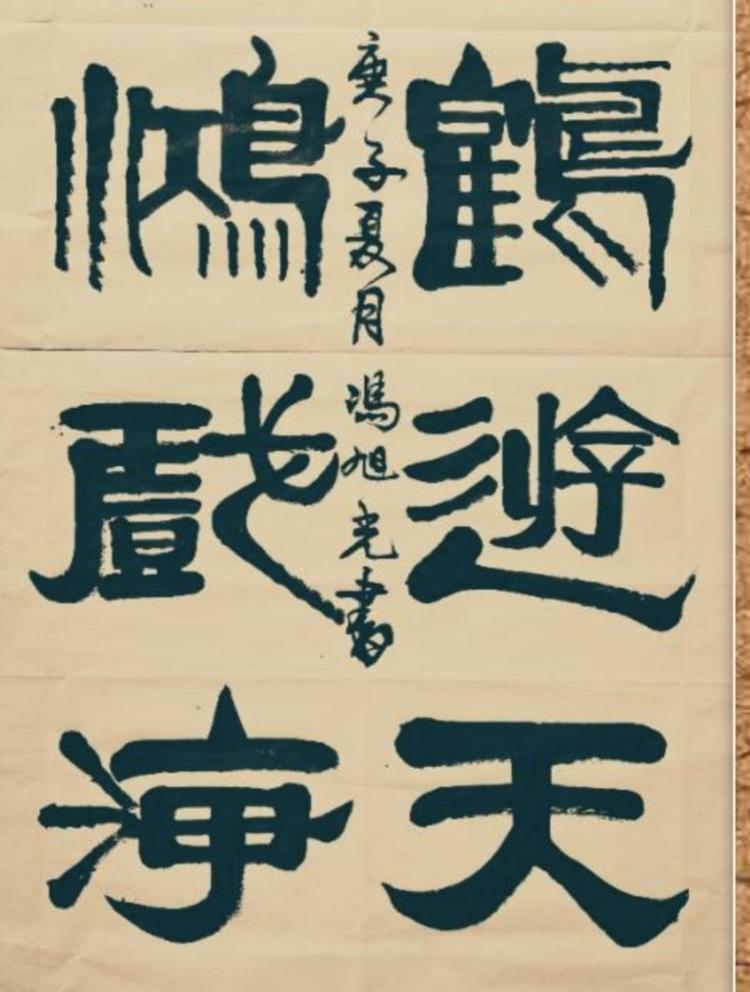 鶴遊天
庚子夏月 馮旭光書
鴻戲海